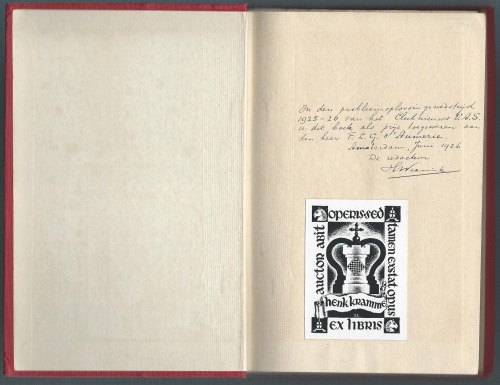 In den probleemoplossingswedstrijd
1925-26 van het Clubnieuws V.A.S.
is dit boek als prijs toegewezen aan
den heer F. E. G. d'Aumerie.
Amsterdam, Juni 1926
De redacteur
operis·sed
auctor abit
tamen exstat opus
henk kramme
EX LIBRIS